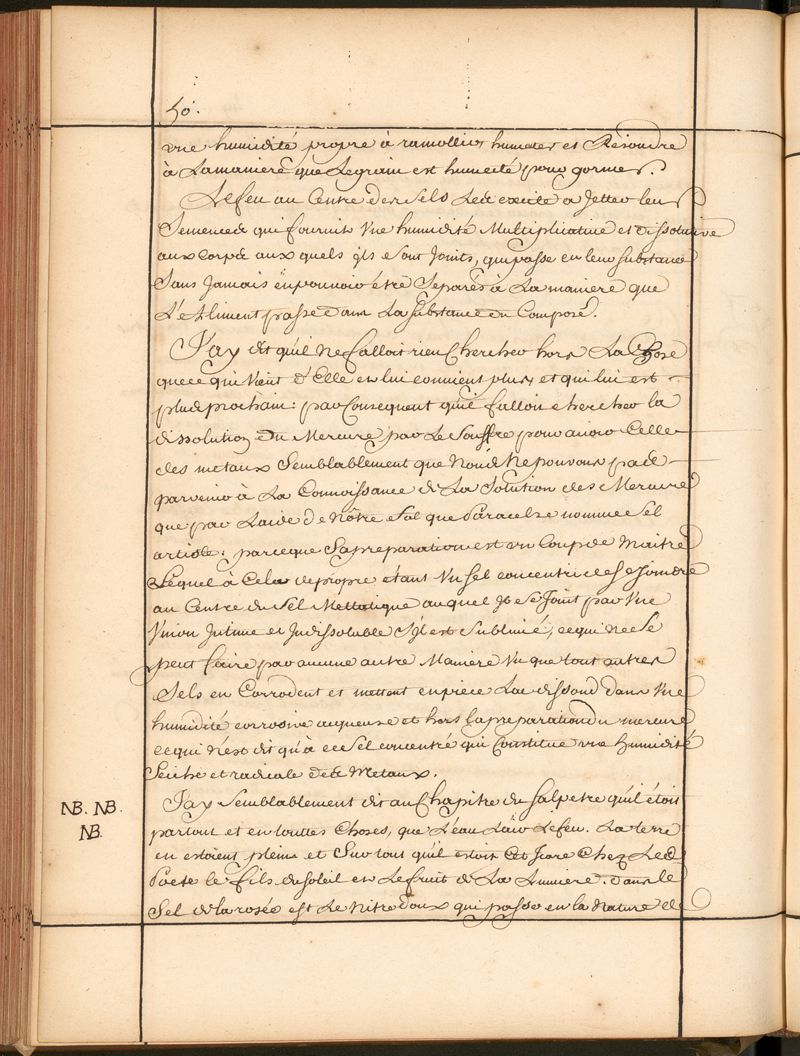 50.
une humidité propre à ramollir humecter et Resoudre
à Lamaniere que Legrain est humecté pour germer.
Lefeu au Centre des Sels Les excite a Jetter leur
Semences qui fournit Une humidité Multiplicative et dissolutive
aux corps aux quels ils sont Joints, qui passe en leur substance
Sans Jamais en pouvoir être Separés à La maniere que
L'Aliment passe dans La substance du Composé.
J'ay dit qu'il ne falloit rien Chercher hors La Chose
que ce qui Vient d'Elle et lui convient plus et qui lui est
plus prochain: par Consequent qu'il falloit chercher la
dissolution du Mercure par Le Souffre pour avoir Celle
des metaux Semblablement que Nous Ne pouvons pas
parvenir à La Connoissance de La Solution des Mercure
que par Laide de Nôtre Sel que Paracelse nomme Sel
article: parceque Sa preparation est un Coup de Maitre
Lequel à Cela de propre étant Un sel concentré de se Joindre
au Centre du Sel Mettalique auquel Il se Joint par Une
Union Intime et Indissoluble S'il est Sublimé, ce qui Ne se
peut faire par aucune autre Maniere Vu que tout autres
Sels en Corrodent et mettent en piece La dissoud dans Une
humidité corrosive aqueuse et hors la preparation du mercure
ce qui n'est dit qu'à ce Sel concentré qui Constitue une humidité
Seiche et radicale des Metaux.
NB. NB.
NB.
J'ay Semblablement dit au Chapitre du Salpetre qu'il étoit
partout et en touttes Choses, que L'eau L'air Lefeu. La terre
en estoient pleins et Sur tout qu'il estoit Cet Icare Chez Les
Poete le fils du Soleil et Le fruit de La Lumiere. dans le
Sel de la rosée est Le Nitre doux qui passe en la Nature de